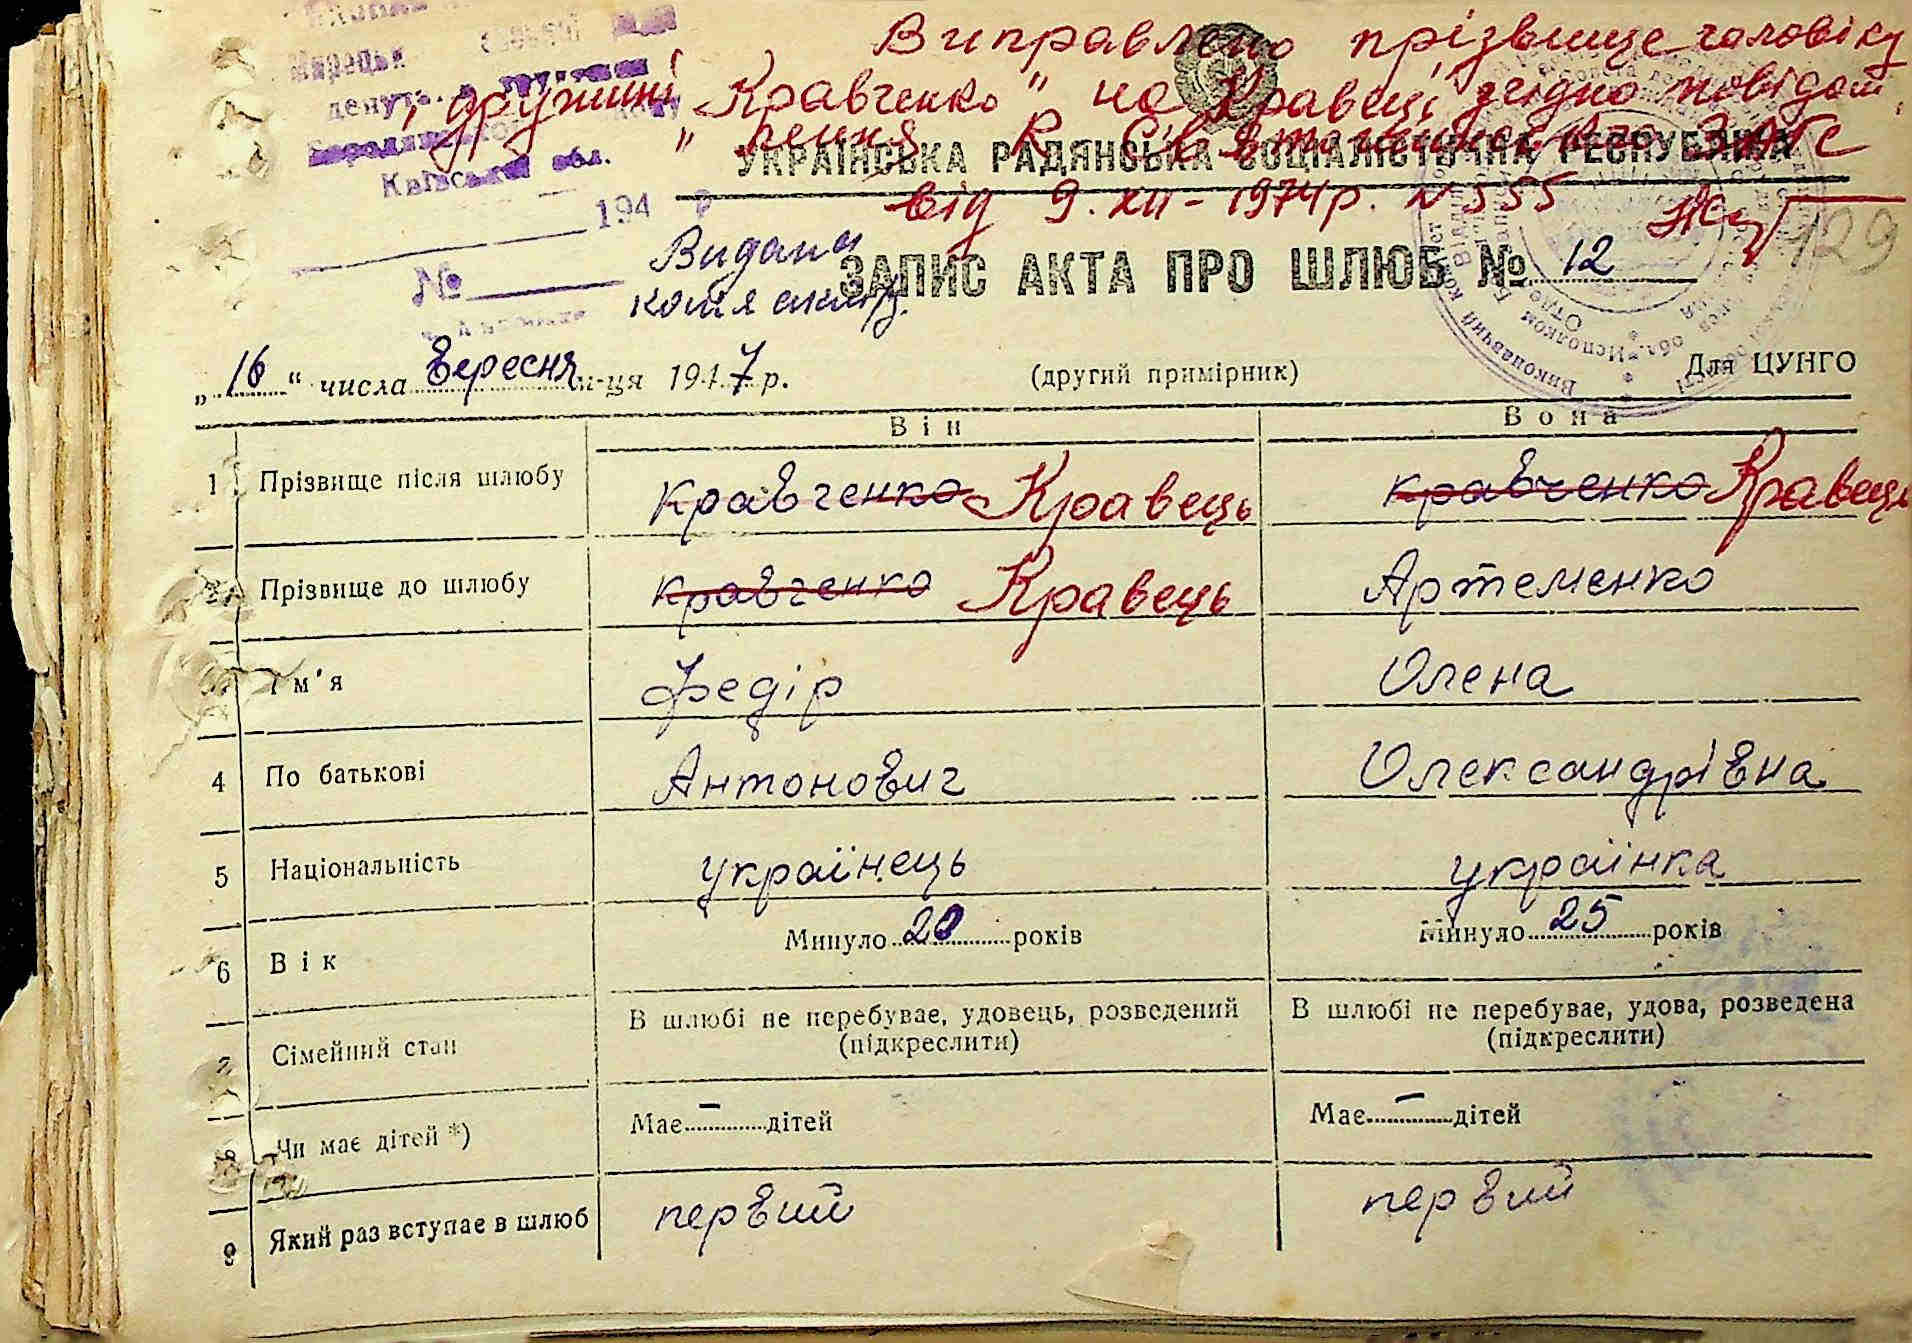 Виправлено прізвище чоловіку
і дружині "Кравченко" на
"Кравець" згідно повідом
лення ЗАГС
від 9.XII-1974р. N 555
129
денут.
Київської обл.
194 р
№
УКРАЇНСЬКА РАДЯНСЬКА СОЦІАЛІСТИЧНА РЕСПУБЛІКА
Видана
копія
ЗАПИС АКТА ПРО ШЛЮБ № 12
"16" числа вересня м-ця 1947 р. (другий примірник) Для ЦУНГО
Він Вона
1 Прізвище після шлюбу Кравченко Кравець Кравченко Кравець
2 Прізвище до шлюбу Кравченко Кравець Артеменко
Ім'я Федір Олена
4 По батькові Антонович Олександрівна
5 Національність українець українка
6 Вік Минуло 20 років Минуло 25 років
7 Сімейний стан В шлюбі не перебуває, удовець, розведений (підкреслити) В шлюбі не перебуває, удова, розведена (підкреслити)
8 Чи має дітей *) Має – дітей Має – дітей
9 Який раз вступає в шлюб первий первий